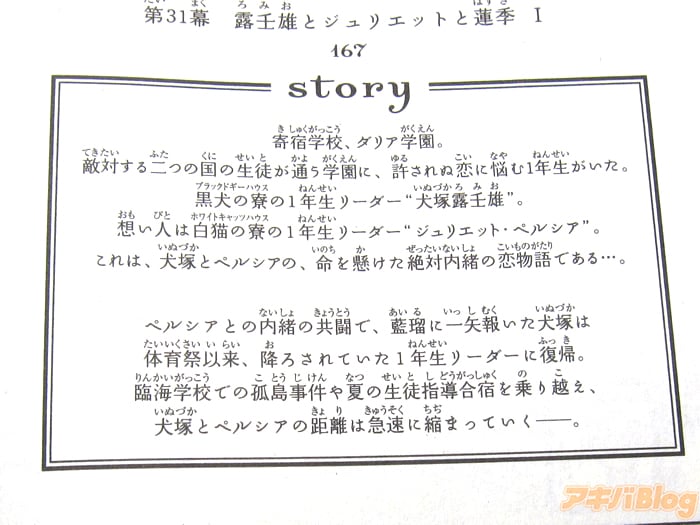 第31幕 露壬雄とジュリエットと蓮季 I
167
story
寄宿学校、ダリア学園。
敵対する二つの国の生徒が通う学園に、許されぬ恋に悩む1年生がいた。
黒犬の寮の1年生リーダー“犬塚露壬雄”。
想い人は白猫の寮の1年生リーダー“ジュリエット・ペルシア”。
これは、犬塚とペルシアの、命を懸けた絶対内緒の恋物語である…。
ペルシアとの内緒の共闘で、藍瑠に一矢報いた犬塚は
体育祭以来、降ろされていた1年生リーダーに復帰。
臨海学校での孤島事件や夏の生徒指導合宿を乗り越え、
犬塚とペルシアの距離は急速に縮まっていく──。
アキバBlog